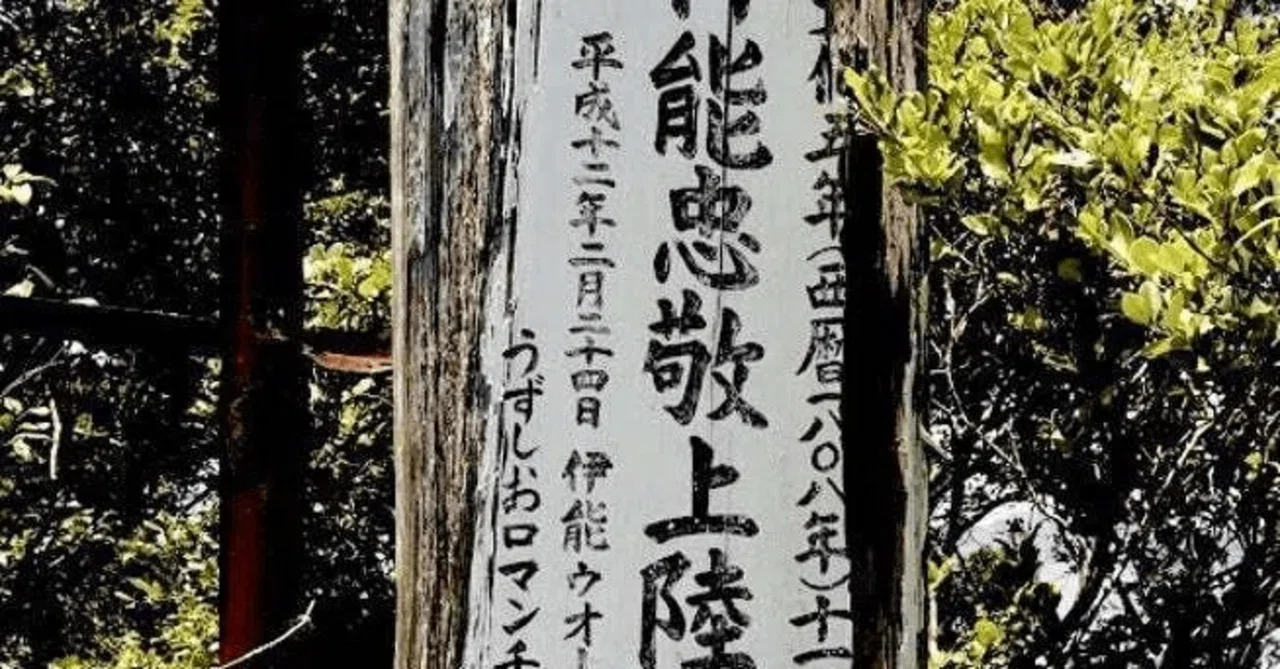 五年(西暦一八〇八年)十一
能忠敬上陸
平成十二年二月二十四日 伊能ウオー
うずしおロマンチ